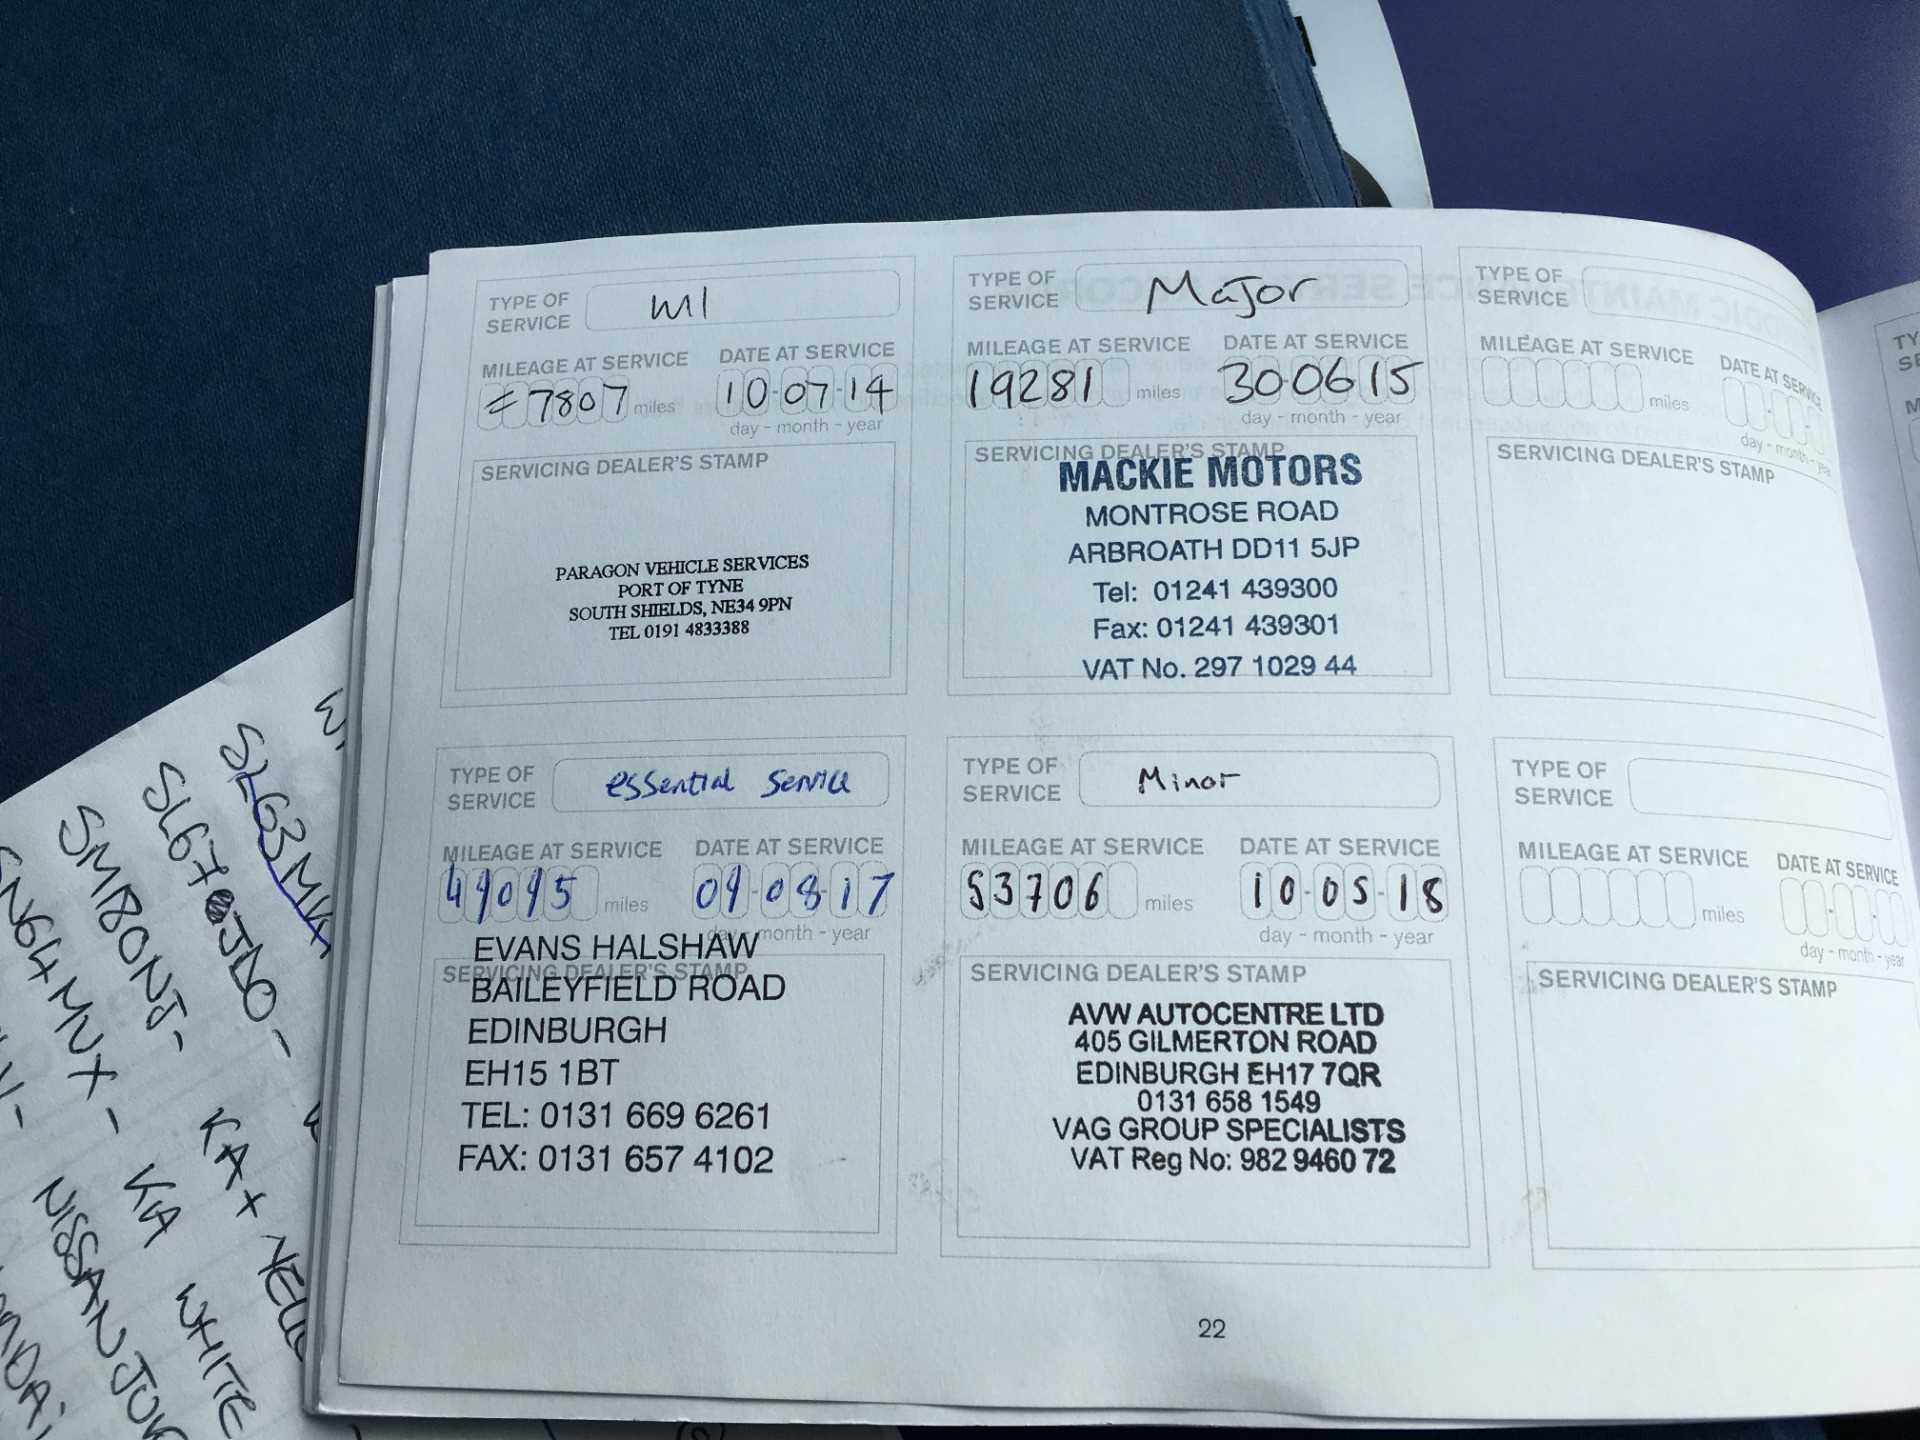 TYPE OF SERVICE
MILEAGE AT SERVICE DATE AT SERVICE
7807 miles 10-07-14
day - month - year
SERVICING DEALER'S STAMP
PARAGON VEHICLE SERVICES
PORT OF TYNE
SOUTH SHIELDS, NE34 9PN
TEL 0191 4833388
TYPE OF SERVICE Major
MILEAGE AT SERVICE DATE AT SERVICE
19281 miles 30 06 15
day - month - year
SERVICING DEALER'S STAMP
MACKIE MOTORS
MONTROSE ROAD
ARBROATH DD11 5JP
Tel: 01241 439300
Fax: 01241 439301
VAT No. 297 1029 44
TYPE OF SERVICE
MILEAGE AT SERVICE DATE AT SERVICE
miles
day - month - year
SERVICING DEALER'S STAMP
TYPE OF SERVICE essential service
MILEAGE AT SERVICE DATE AT SERVICE
miles 09-08-17
day - month - year
SERVICING DEALER'S STAMP
EVANS HALSHAW
BAILEYFIELD ROAD
EDINBURGH
EH15 1BT
TEL: 0131 669 6261
FAX: 0131 657 4102
TYPE OF SERVICE Minor
MILEAGE AT SERVICE DATE AT SERVICE
53706 miles 10-05-18
day - month - year
SERVICING DEALER'S STAMP
AVW AUTOCENTRE LTD
405 GILMERTON ROAD
EDINBURGH EH17 7QR
0131 658 1549
VAG GROUP SPECIALISTS
VAT Reg No: 982 9460 72
TYPE OF SERVICE
MILEAGE AT SERVICE DATE AT SERVICE
miles
day - month - year
SERVICING DEALER'S STAMP
22
KA+
KIA WHITE
NISSAN